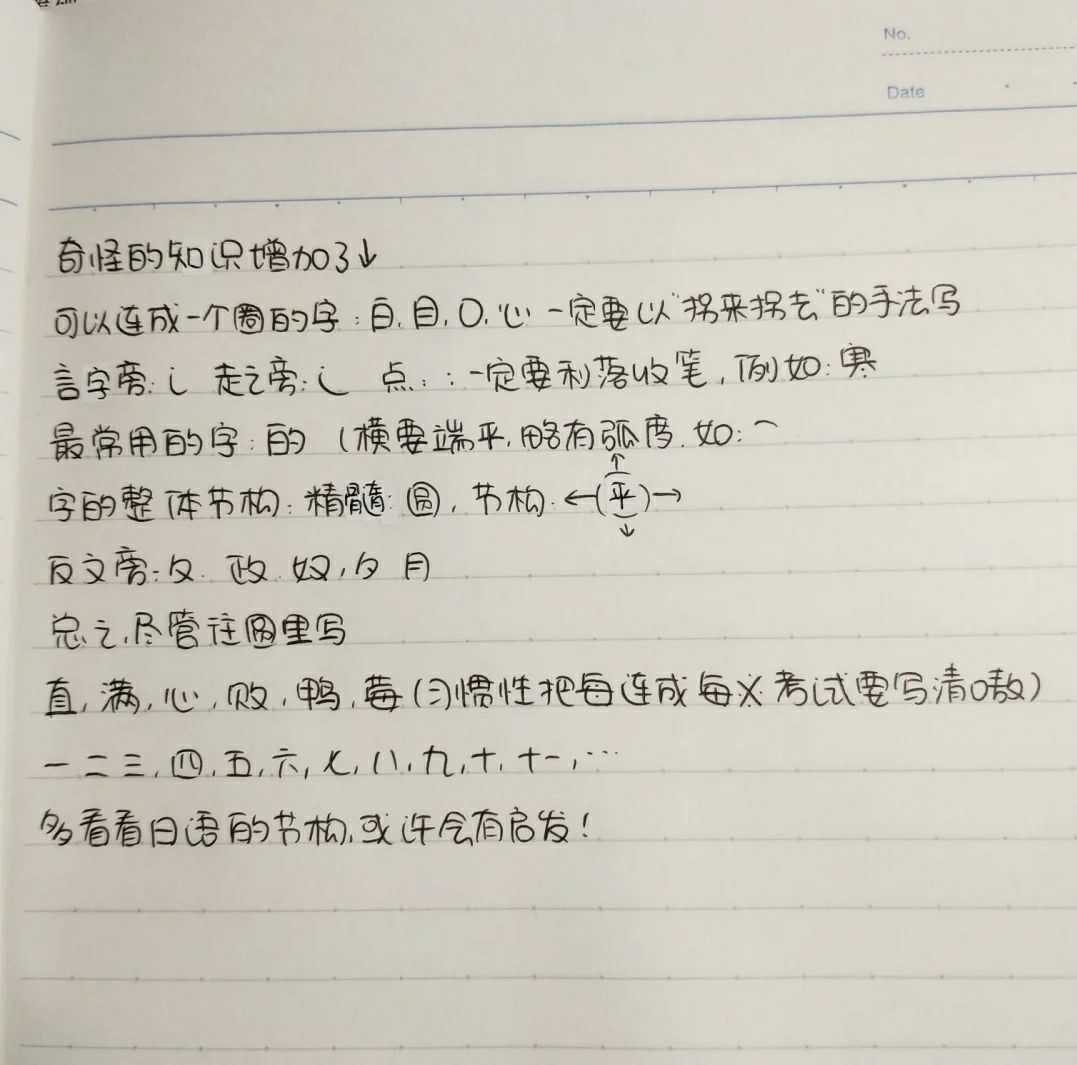 No.
Date
奇怪的知识增加了↓
可以连成一个圈的字:白.目.口.心 一定要以"拐来拐去"的手法写
言字旁:讠 走之旁:辶 点::一定要利落收笔,例如:寒
最常用的字:的 (横要端平,略有弧度.如:⌒
字的整体节构:精髓:圆,节构:←(平)→
反文旁:攵.政.奴,夕 月
总之,尽管往圆里写
直,满,心,败,鸭,莓(习惯性把每连成每 考试要写清口敖)
一二三,四,五,六,七,八,九,十,十一,…
多看看日语的节构,或许会有启发!